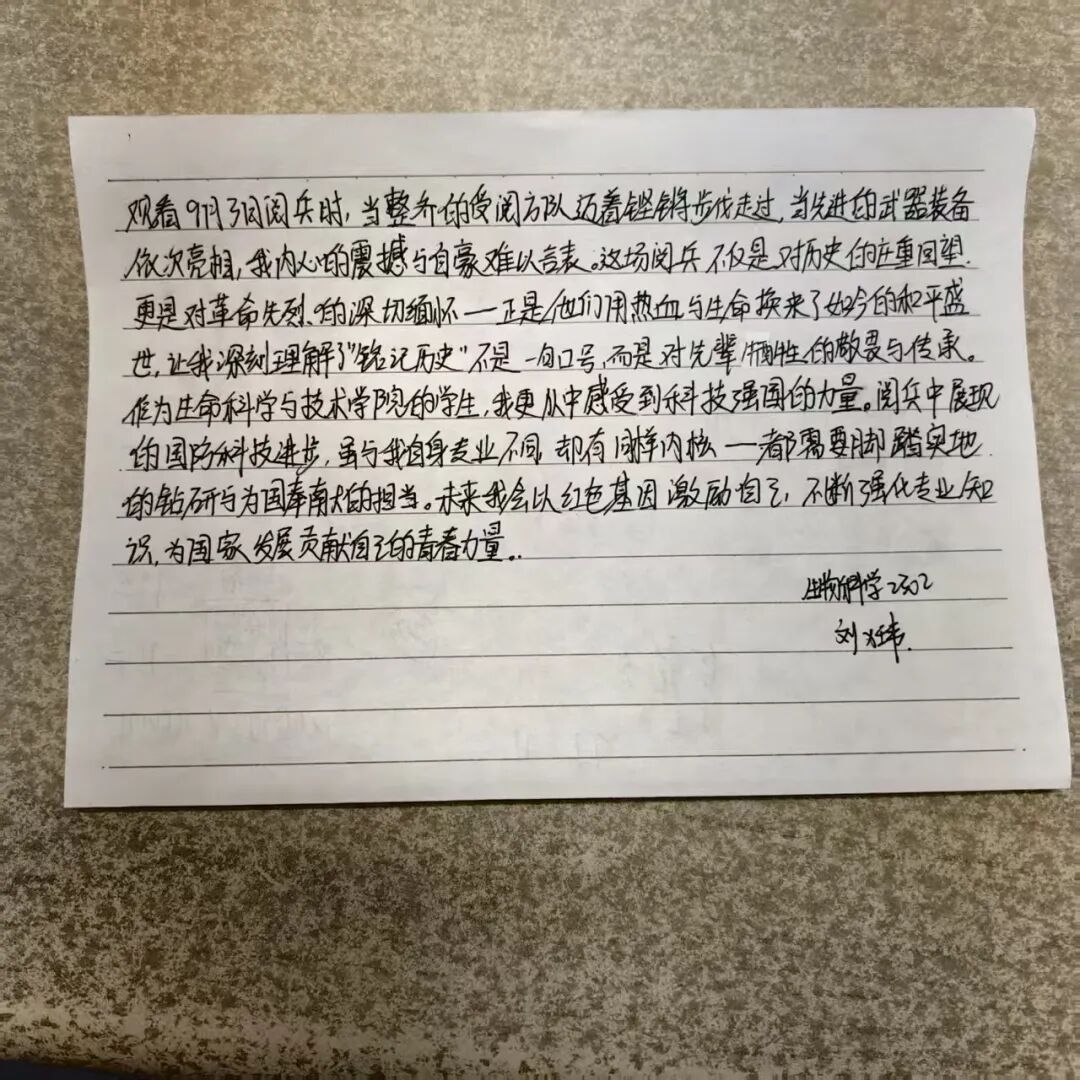 观看9月3日阅兵时，当整齐的受阅方队迈着铿锵步伐走过，当先进的武器装备
依次亮相，我内心的震撼与自豪难以言表。这场阅兵不仅是对历史的庄重回望，
更是对革命先烈的深切缅怀——正是他们用热血与生命换来了如今的和平盛
世，让我深刻理解了"铭记历史"不是一句口号，而是对先辈牺牲的敬畏与传承。
作为生命科学与技术学院的学生，我更从中感受到科技强国的力量。阅兵中展现
的国防科技进步，虽与我自身专业不同，却有同样内核——都需要脚踏实地
的钻研与为国奉献的担当。未来我会以红色基因激励自己，不断强化专业知
识，为国家发展贡献自己的青春力量。
生物科学2302
刘